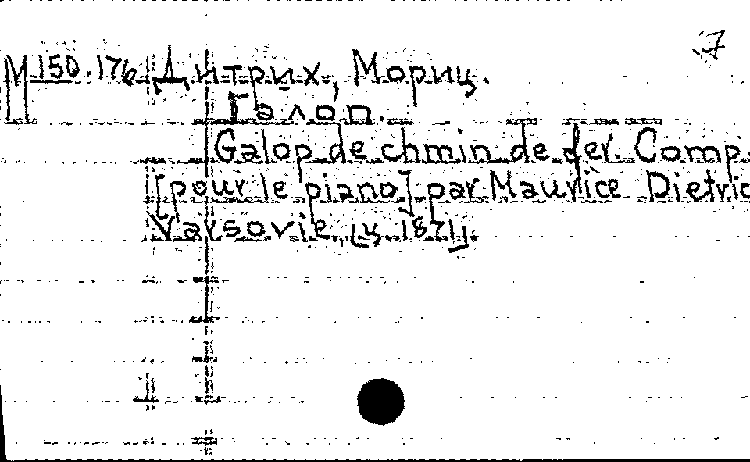 7
M 150.176 Дитрих, Мориц.
Галоп.
Galop de chmin de fer. Comp.
[pour le piano] par Maurice Dietric
Varsovie, [ц. 1871].